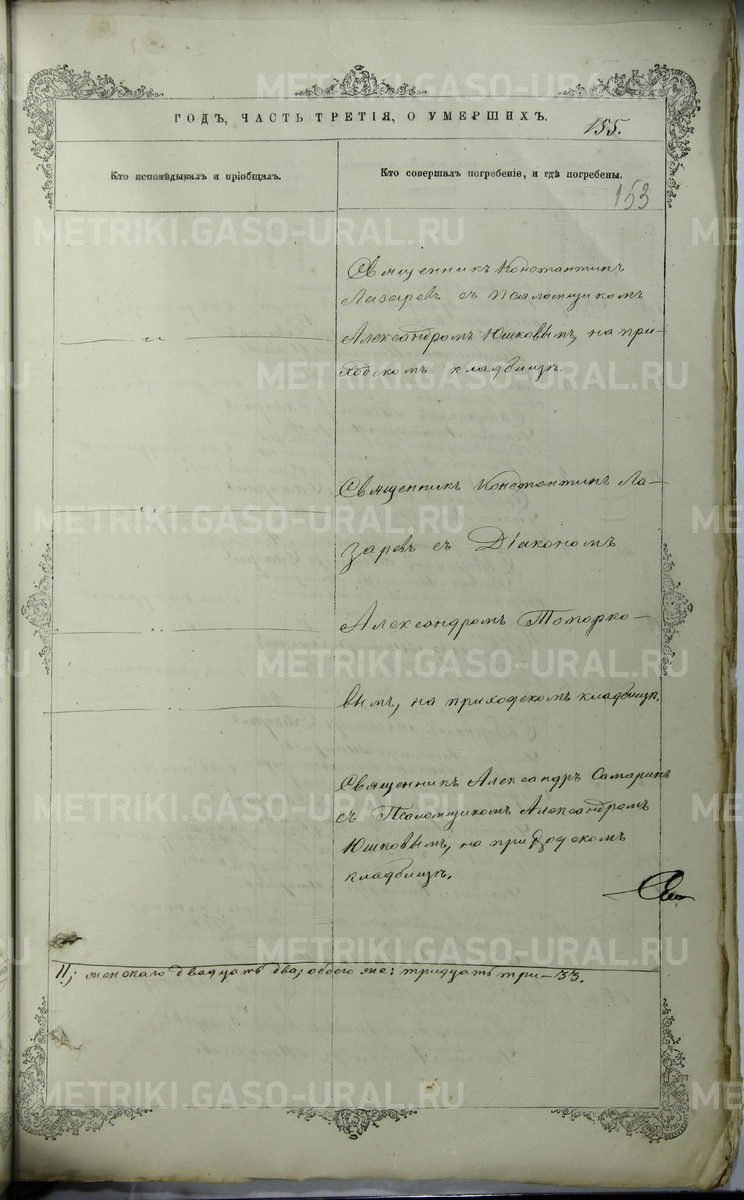 ГОДЪ, ЧАСТЬ ТРЕТІЯ, О УМЕРШИХЪ.
155.
Кто исповѣдывалъ и пріобщалъ.
Кто совершалъ погребеніе, и гдѣ погребены.
153
Священникъ Константинъ
Лазаревъ съ Псаломщикомъ
Александромъ Юшковымъ, на при-
ходскомъ кладбищѣ.
Священникъ Константинъ Ла-
заревъ съ Діакономъ
Александромъ Топорко-
вымъ, на приходскомъ кладбищѣ.
Священникъ Александръ Самаринъ
съ Псаломщикомъ Александромъ
Юшковымъ, на приходскомъ
кладбищѣ.
11; женскаго двадцать два; обоего же: тридцать три – 33.
METRIKI.GASO-URAL.RU